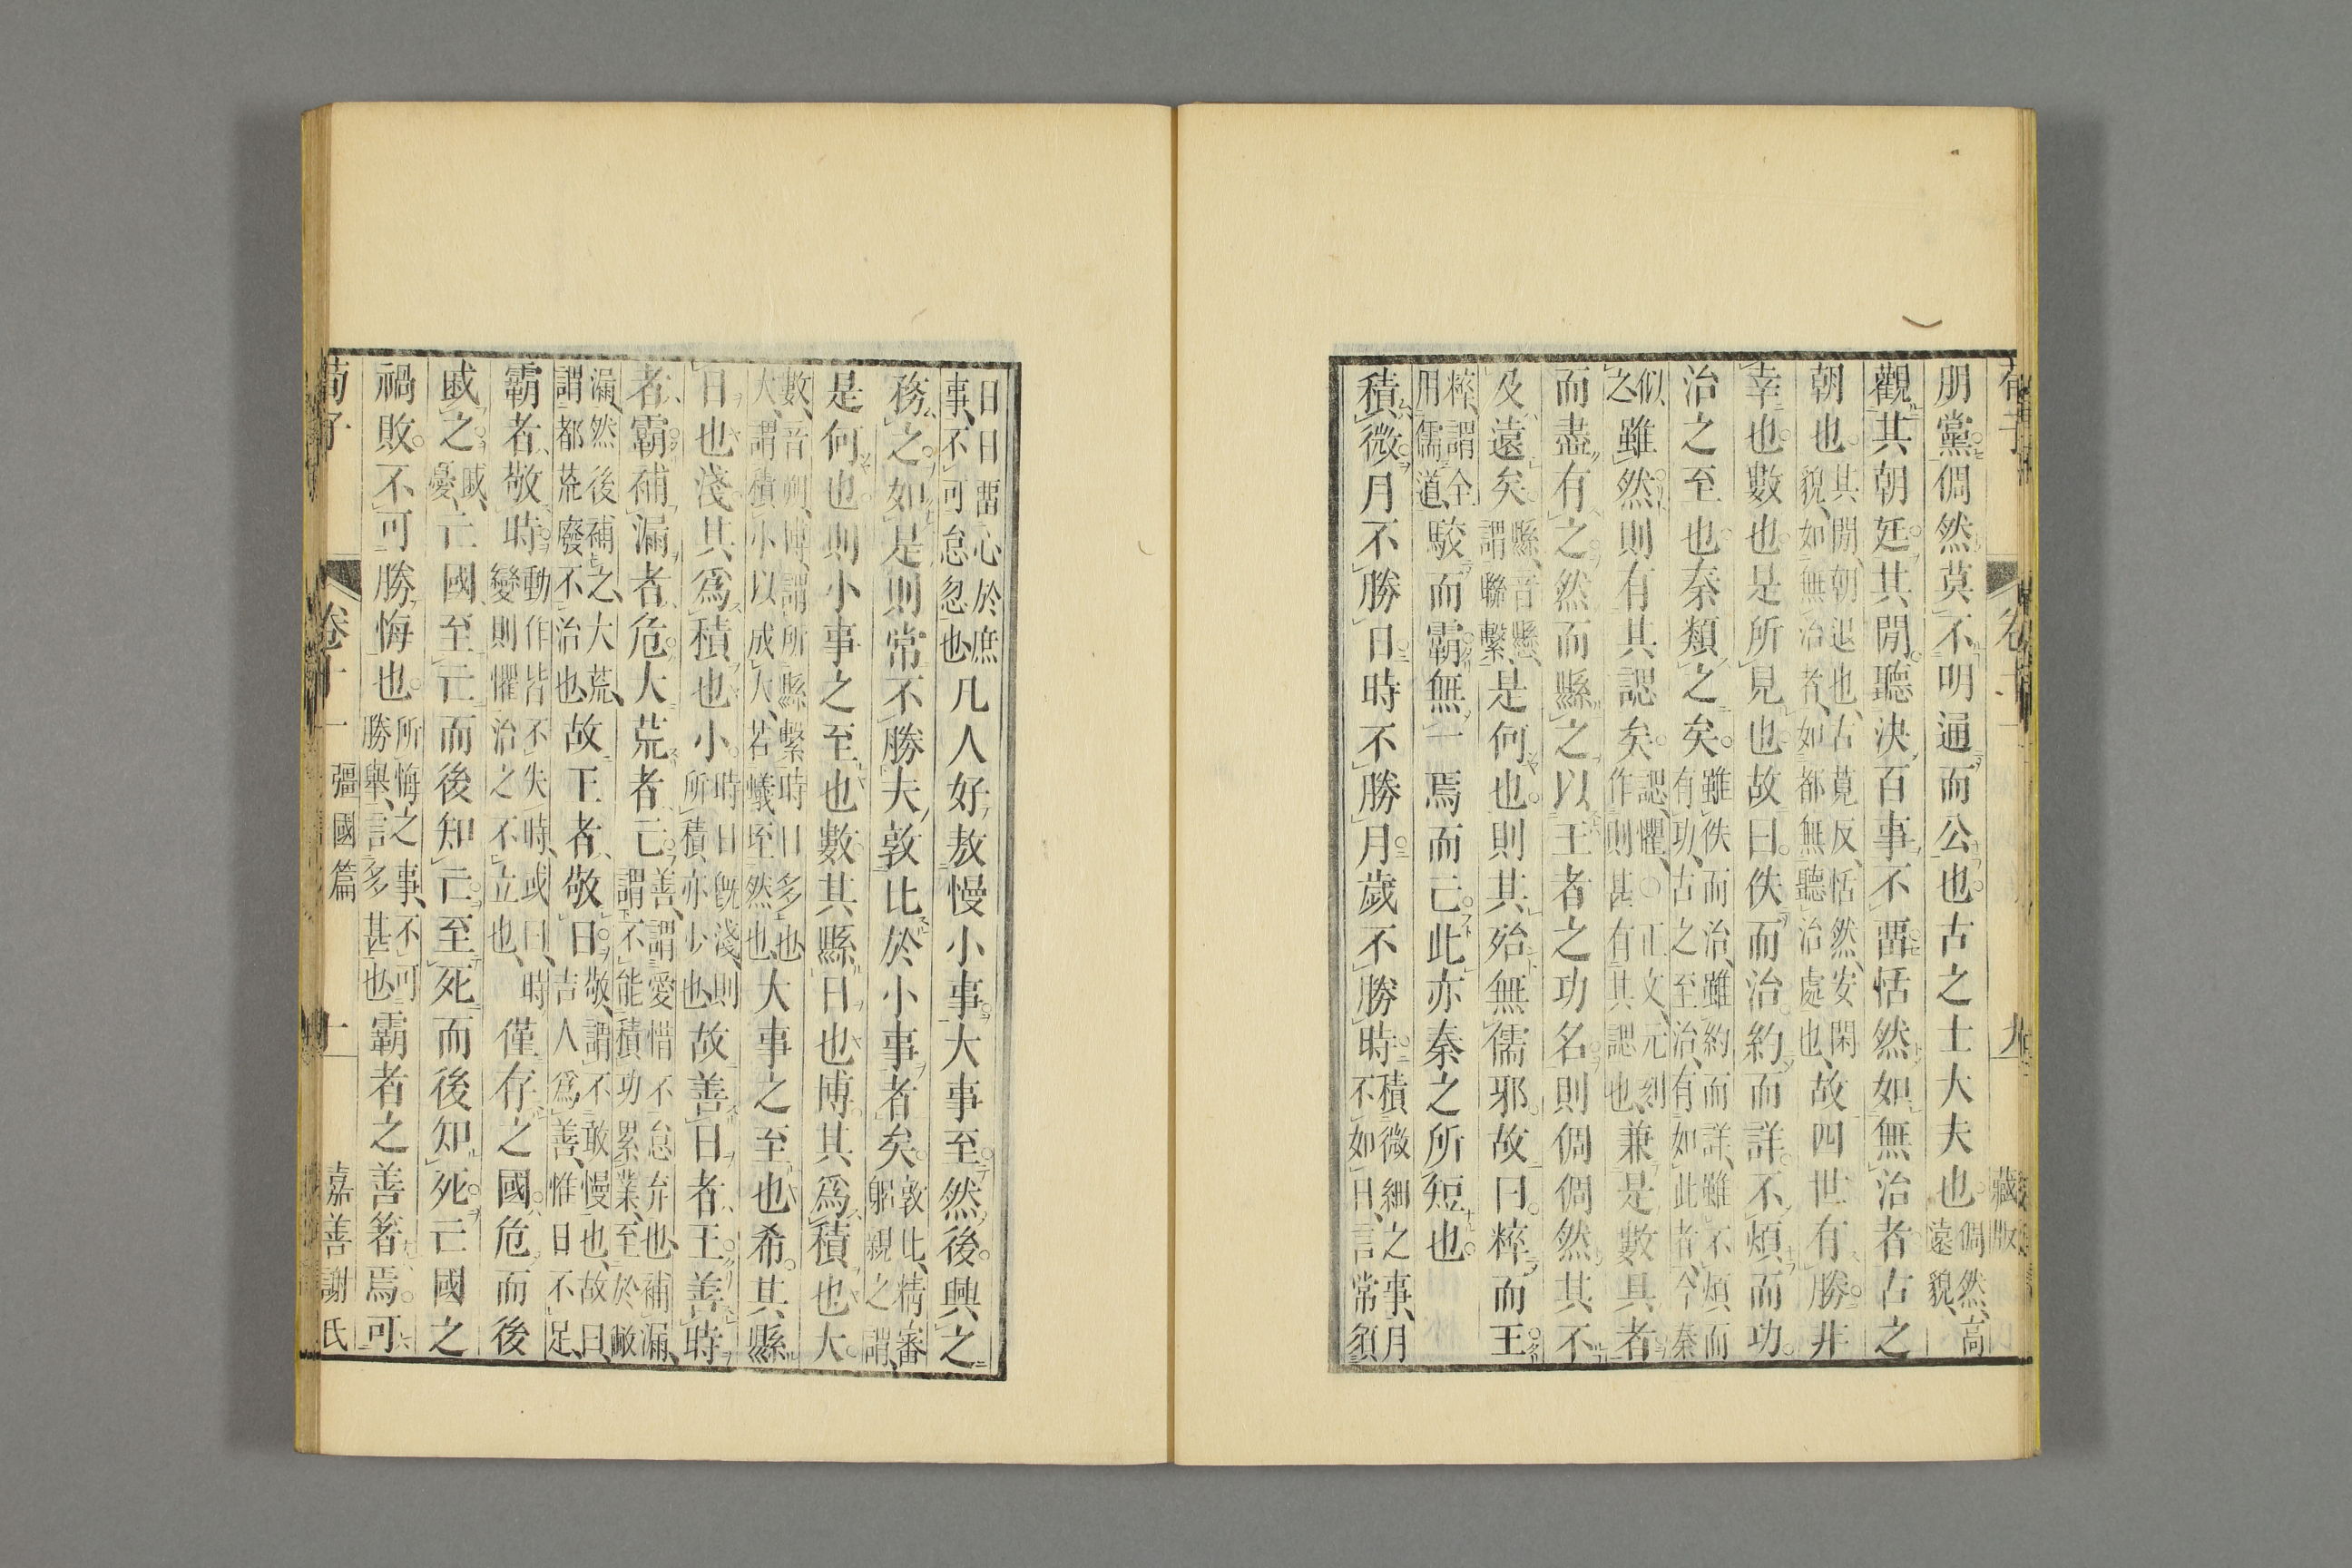 荀子 卷十一 九 藏版
朋黨倜然莫不明通而公也古之士大夫也倜然高遠貌
觀其朝廷其閒聽決百事不畱恬然如無治者古之
朝也其閒朝退也古莧反恬然安閑貌如無治者如都無聽治處也故四世有勝非
幸也數也是所見也故曰佚而治約而詳不煩而功
治之至也秦類之矣雖佚而治雖約而詳雖不煩而有功古之至治有如此者今秦
似之雖然則有其諰矣諰懼○正文元刻作則甚有其諰也兼是數具者
而盡有之然而縣之以王者之功名則倜倜然其不
及遠矣縣音懸謂聯繫是何也則其殆無儒邪故曰粹而王
粹謂全用儒道駁而霸無一焉而亡此亦秦之所短也
積微月不勝日時不勝月歲不勝時積微細之事月不如日言常須
日日畱心於庶事不可怠忽也凡人好敖慢小事大事至然後興之
務之如是則常不勝夫敦比於小事者矣敦比精審躬親之謂
是何也則小事之至也數其縣日也博其爲積也大
數音朔博謂所縣繫時日多也大謂積小以成大若蟻垤然也大事之至也希其縣
日也淺其爲積也小時日既淺則所積亦少也故善日者王善時
者霸補漏者危大荒者亡善謂愛惜不怠弃也補漏謂不能積功累業至於敝
漏然後補之大荒謂都荒廢不治也故王者敬日敬謂不敢慢也故曰吉人爲善惟日不足
霸者敬時動作皆不失時或曰時變則懼治之不立也僅存之國危而後
戚之戚憂亡國至亡而後知亡至死而後知死亡國之
禍敗不可勝悔也所悔之事不可勝舉言多甚也霸者之善箸焉可
荀子 卷十一 彊國篇 十 嘉善謝氏